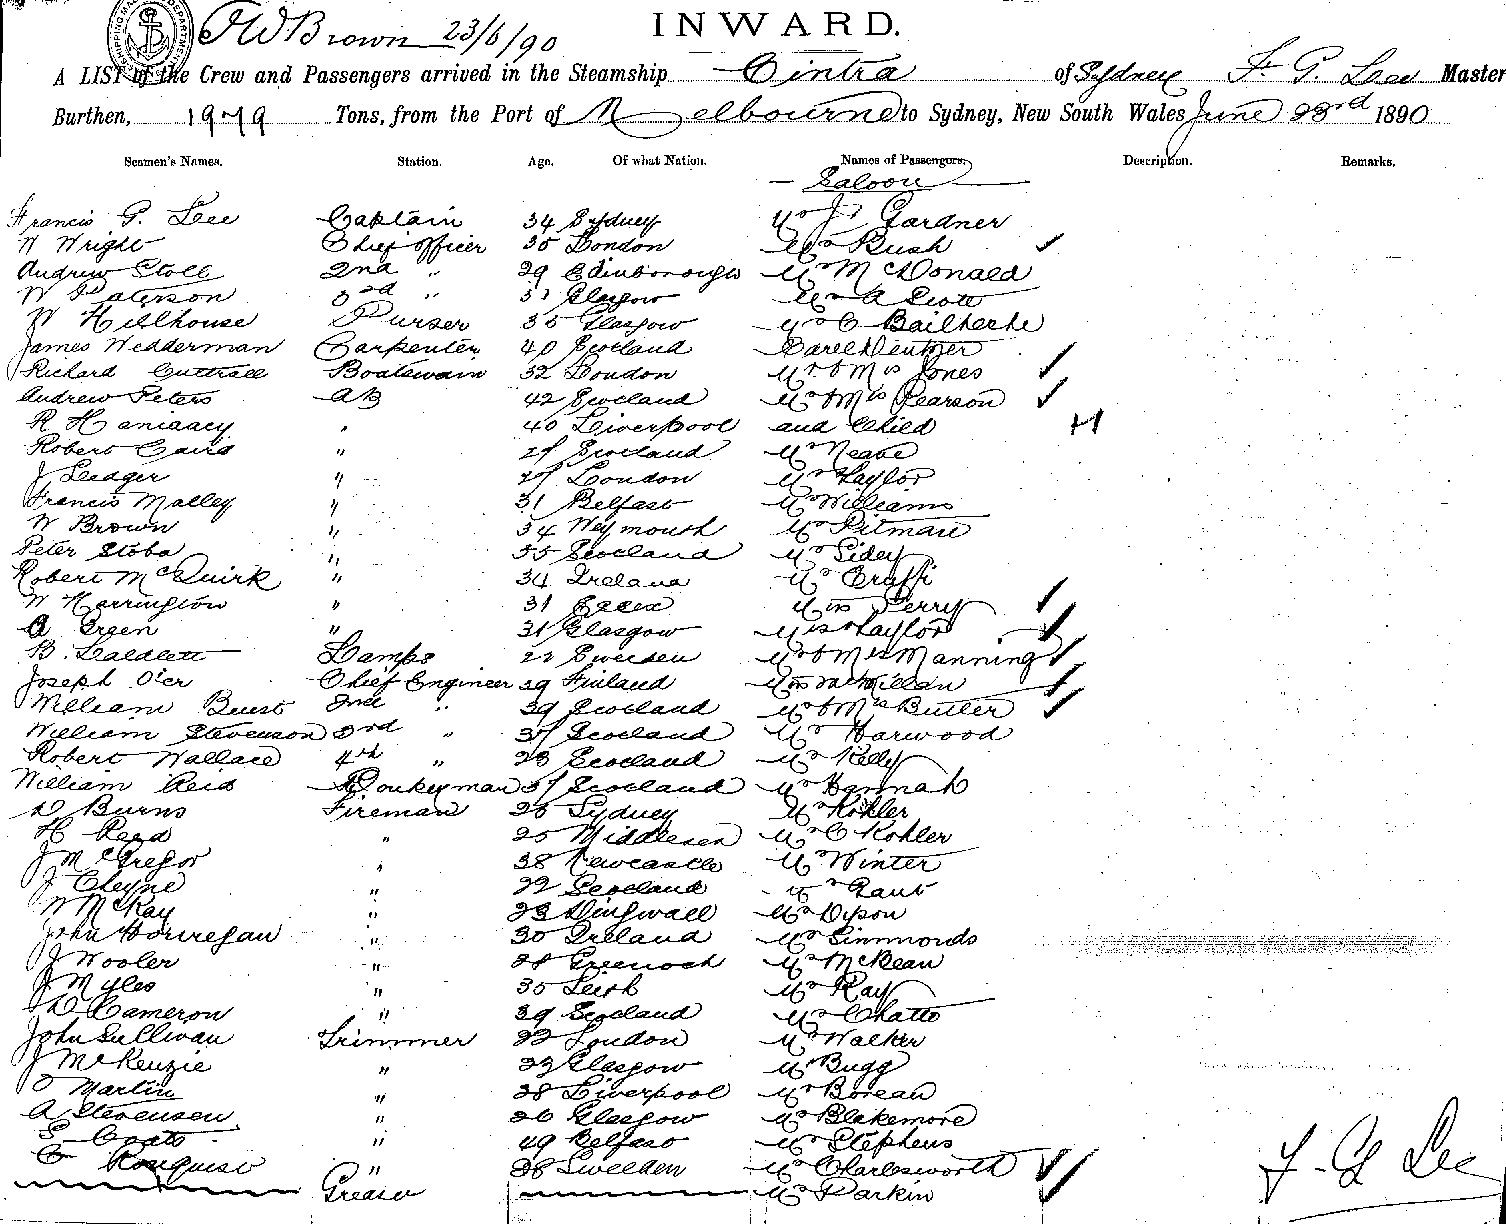 FW Brown 23/6/90
INWARD.
A LIST of the Crew and Passengers arrived in the Steamship Cintra of Sydney F. G. Lee Master
Burthen, 1979 Tons, from the Port of Melbourne to Sydney, New South Wales June 23rd 1890
Seamen's Names. Station. Age. Of what Nation. Names of Passengers. Description. Remarks.
Saloon
Francis G. Lee Captain 34 Sydney Mr J. Gardner
W Wright Chief Officer 35 London Bush
Andrew Stoll 2nd " 29 Edinborough Mr McDonald
W Paterson 3rd " 31 Glasgow Mr A Scott
W Hillhouse Purser 35 Glasgow Mr C Bailhache
James Wedderman Carpenter 40 Scotland
Richard Cuttrall Boatswain 32 London Mr & Mrs Jones
Andrew Peters AB 42 Scotland Mr & Mrs Pearson
R " 40 Liverpool and Child
Robert Caird " Scotland Mr Neave
J Ledger " London Mr Taylor
Francis Malley " 31 Belfast Mr Williams
W Brown " 34 Weymouth Mr Pitman
Peter Stobo " 55 Scotland Mr Sidey
Robert McQuirk " 34 Ireland Mr
W Harrington " 31 Essex Perry
A Green " 31 Glasgow Taylor
B. Lamps Sweeden Mr & Mrs Manning
Joseph Oer Chief Engineer 39 Finland McMillan
William Buist 2nd " 39 Scotland Mr & Mrs Butler
William Stevenson 3rd " Scotland Mr Harwood
Robert Wallace 4th " Scotland Mr Kelly
William Reid Donkeyman Scotland Mr Hannah
D Burns Fireman 26 Sydney Mr Kohler
H Reed " 25 Middlesex Mr C Kohler
J McGregor " 38 Newcastle Mr Winter
J Cheyne " 22 Scotland Mr Gaut
W McKay " 23 Dingwall Mr Dyson
John Horrregan " 30 Ireland Mr Simmonds
J Wooler " 28 Greenock Mr McBean
J Myles " 35 Leith Mr Kay
D Cameron " 39 Scotland Mr Chatto
John Sullivan Trimmer 22 London Mr Walker
J McKenzie " 23 Glasgow Mr Bugg
Martin " 28 Liverpool Mr Borean
A Stevensen " 26 Glasgow Mr Blakemore
Coats " 49 Belfast Mr Stephens
" 28 Sweeden Mr Charlesworth
Greaser Mr Parkin
F. G Lee